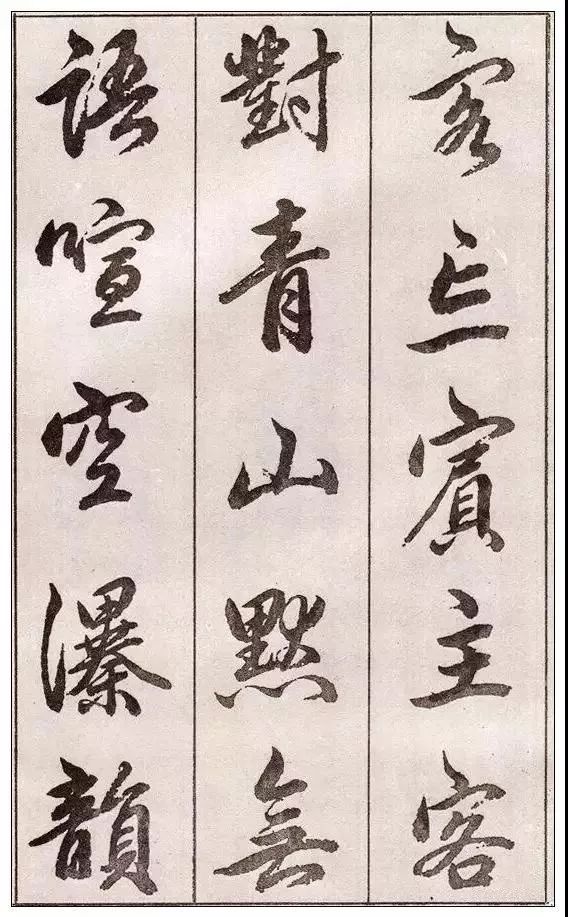 忘賓主客
對青山默無
語喧空瀑韻